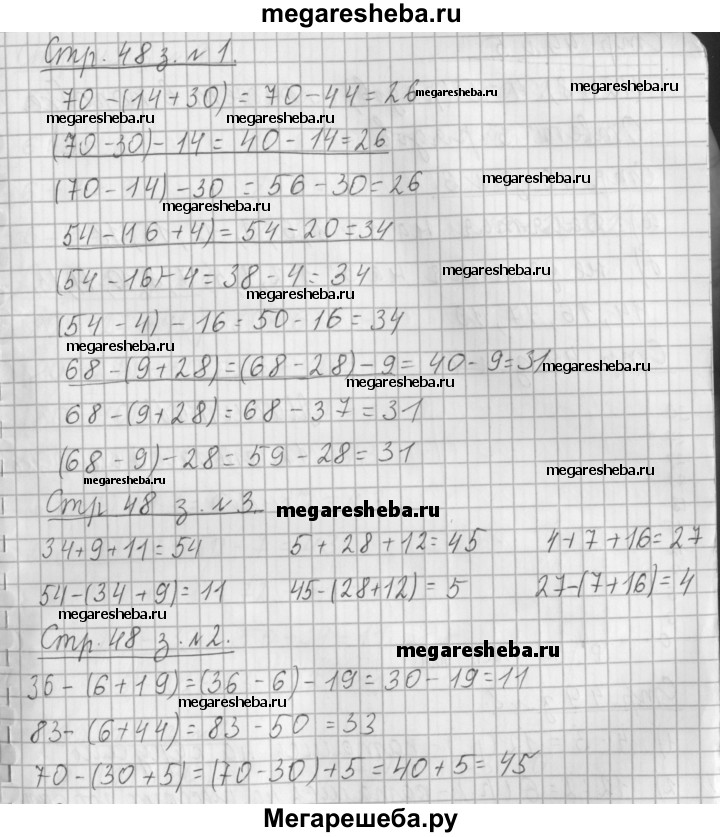 megaresheba.ru
Стр. 48 з. №1.
70 - (14 + 30) = 70 - 44 = 26 megaresheba.ru
megaresheba.ru
megaresheba.ru megaresheba.ru
(70 - 30) - 14 = 40 - 14 = 26
(70 - 14) - 30 = 56 - 30 = 26 megaresheba.ru
megaresheba.ru
54 - (16 + 4) = 54 - 20 = 34
(54 - 16) - 4 = 38 - 4 = 34 megaresheba.ru
megaresheba.ru
(54 - 4) - 16 = 50 - 16 = 34
megaresheba.ru
68 - (9 + 28) = (68 - 28) - 9 = 40 - 9 = 31 megaresheba.ru
megaresheba.ru
68 - (9 + 28) = 68 - 37 = 31
(68 - 9) - 28 = 59 - 28 = 31 megaresheba.ru
megaresheba.ru
Стр 48 з. №3. megaresheba.ru
34 + 9 + 11 = 54 5 + 28 + 12 = 45 4 + 7 + 16 = 27
54 - (34 + 9) = 11 45 - (28 + 12) = 5 27 - (7 + 16) = 4
megaresheba.ru
Стр. 48 з. №2. megaresheba.ru
36 - (6 + 19) = (36 - 6) - 19 = 30 - 19 = 11
megaresheba.ru
83 - (6 + 44) = 83 - 50 = 33
megaresheba.ru
70 - (30 + 5) = (70 - 30) + 5 = 40 + 5 = 45
Мегарешеба.ру